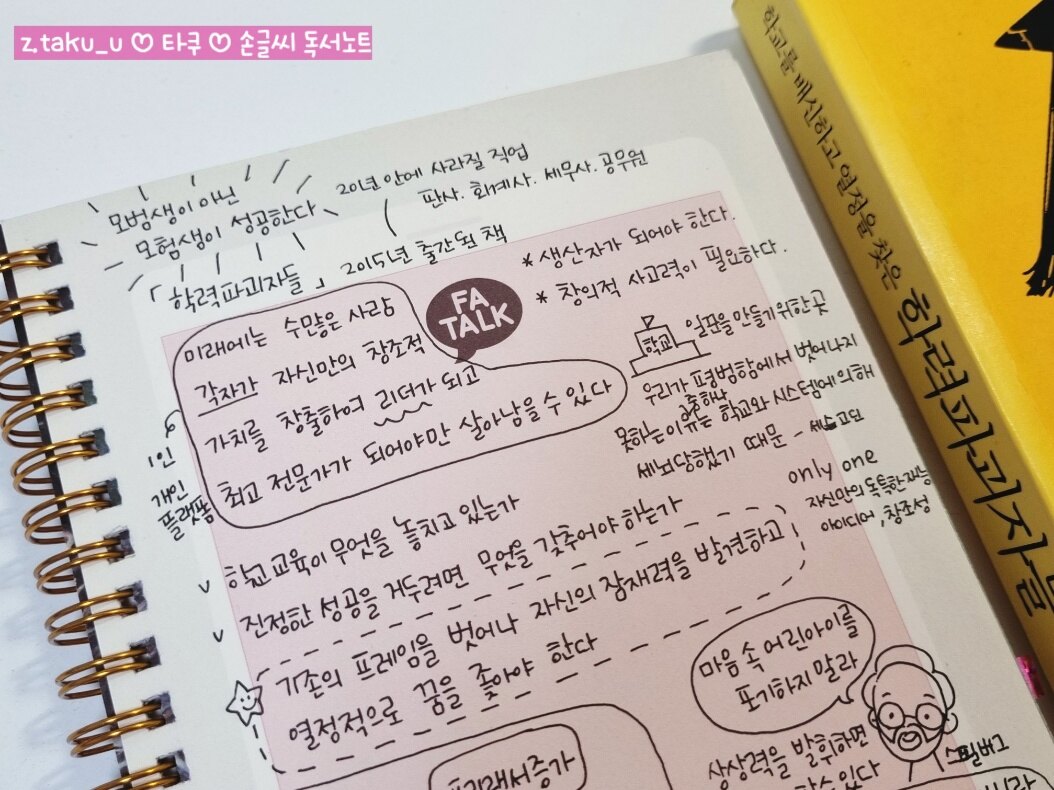 z.taku_u ♡ 타쿠 ♡ 손글씨 독서노트
모범생이 아닌
모험생이 성공한다
20년 안에 사라질 직업
판사. 회계사. 세무사. 공무원
「학력파괴자들」 2015년 출간된 책
* 생산자가 되어야 한다.
* 창의적 사고력이 필요하다.
FA
TALK
미래에는 수많은 사람
각자가 자신만의 창조적
가치를 창출하여 리더가 되고
최고 전문가가 되어야만 살아남을 수 있다
1인
개인
플랫폼
학교
일꾼을 만들기 위한 곳
우리가 평범함에서 벗어나지
못하는 이유는 학교와 시스템에 의해
세뇌당했기 때문 -
only one
자신만의 독특한 재능
아이디어, 창조성
v 학교 교육이 무엇을 놓치고 있는가
v 진정한 성공을 거두려면 무엇을 갖추어야 하는가
기존의 프레임을 벗어나 자신의 잠재력을 발견하고
열정적으로 꿈을 좇아야 한다
마음 속 어린아이를
포기하지 말라
스필버그
상상력을 발휘하면
할 수 있다
학교를 배신하고 열정을 찾은
학력파괴자들